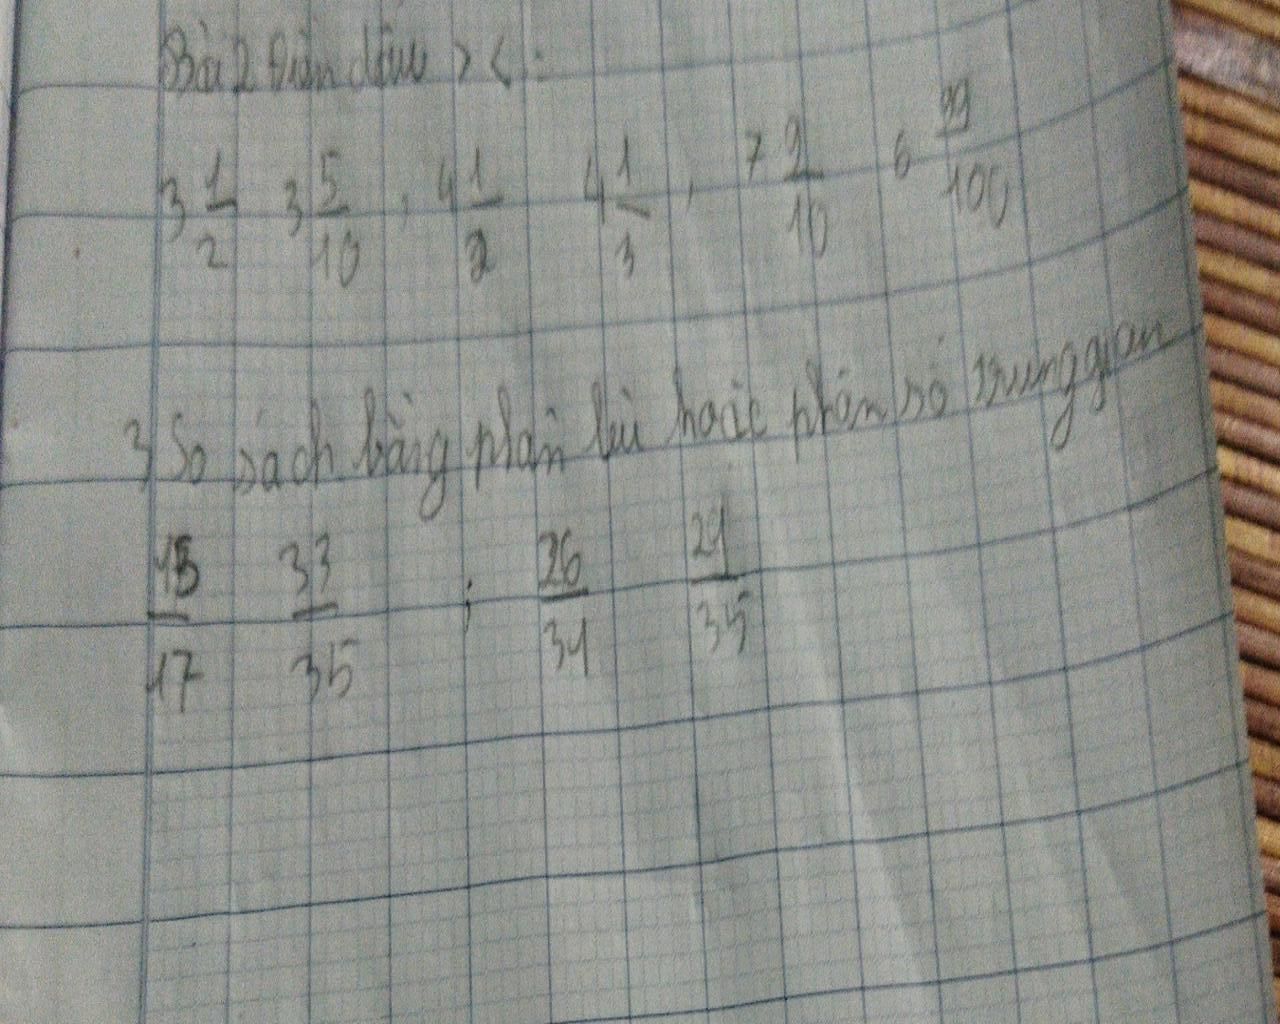 Bài 2 Điền dấu > < =
3 1/2 3 5/10 , 4 1/2 4 1/3 , 7 9/10 6 99/100
3 So sách bằng phần bù hoặc phân số trung gian
15/17 33/35 ; 26/31 29/35